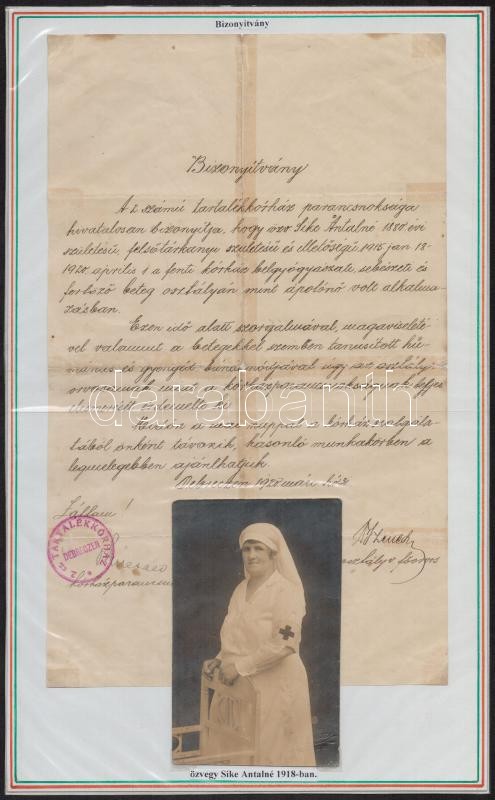 Bizonyitvány
Bizonyitvány
A 2 számú tartalékkórház parancsnoksága
hivatalosan bizonyitja, hogy özv Sike Antalné 1880. évi
születésü, felsőtárkányi születésü és illetőségü 1915 jan 18-
1920. április 1 a fenti kórház belgyógyászati, sebészeti és
fertőző beteg osztályán mint ápolónő volt alkalma-
zásban.
Ezen idő alatt szorgalmával, magaviseleté-
vel valamint a betegekkel szemben tanusitott hu-
mánus és gyöngéd bánásmódjával ugy az osztály-
orvosainak mint a kórházparancsnokságnak teljes
elismerését érdemelte ki.
Midőn a mai nappal a kórház szolgála-
tából önként távozik, hasonló munkakörben a
legmelegebben ajánlhatjuk.
Debreczen 1920 márc hó
Láttam!
TARTALÉKKÓRHÁZ
DEBRECZEN
2. sz.
kórházparancsnok
osztályv. főorvos
databanth
özvegy Sike Antalné 1918-ban.